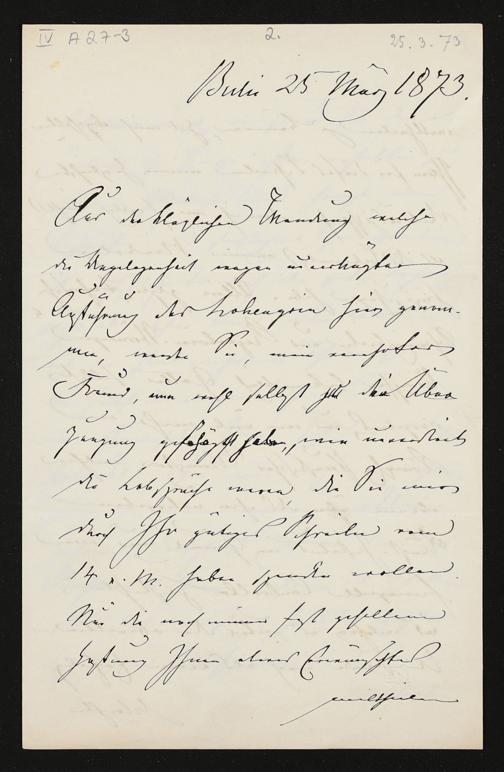 IV A 27-3 2. 25.3.73
Berlin 25 März 1873.
Aus der kläglichen Wendung welche
die Angelegenheit wegen
Aufführung des Lohengrin hier genom-
men, werden Sie, mein verehrter
Freund, nun wohl selbst zu der Über
zeugung haben, wie unverdient
die Lobsprüche waren, die Sie mir
durch Ihr gütiges Schreiben vom
14 v. M. haben spenden wollen.
Nur die noch immer fest gehaltene
Hoffnung Ihnen etwas Erwünschtes
mittheilen